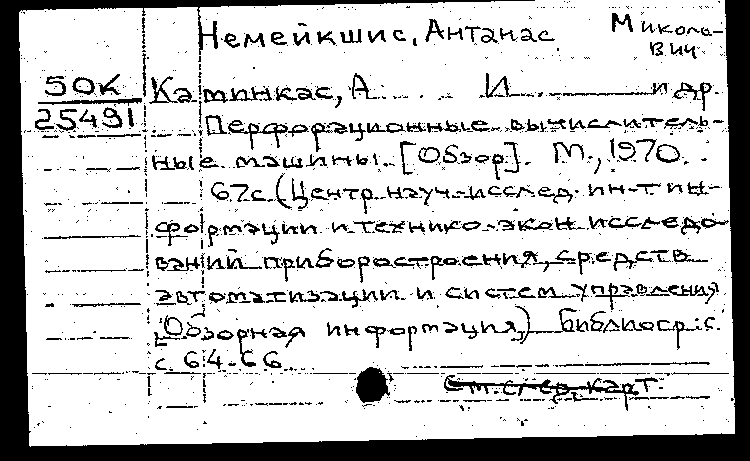 Немейкшис, Антанас Миколо-
вич
50К
25491
Каминкас, А. И. и др.
Перфорационные вычислитель-
ные машины. [Обзор]. М., 1970.
67с. (Центр науч.-исслед. ин-т ин-
формации и технико-экон исследо-
ваний приборостроения, средств
автоматизации и систем управления
Обзорная информация) Библиогр.: с.
с. 64-66
См. след. карт.